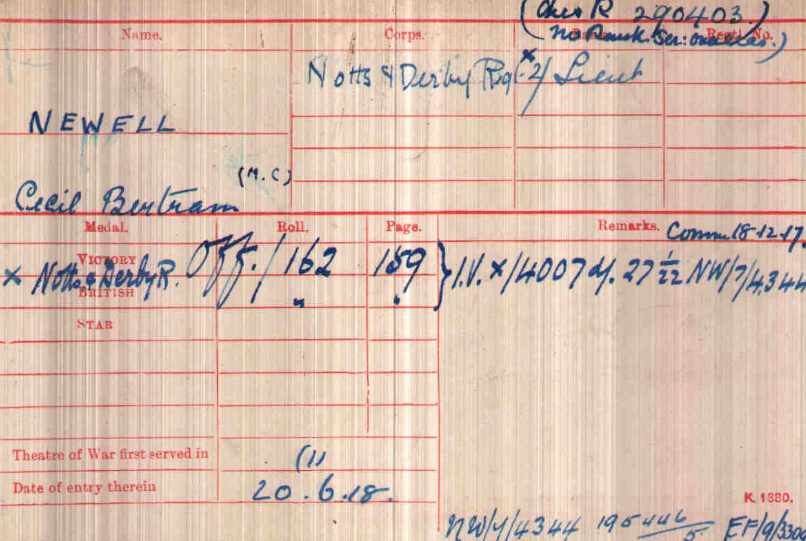 (Ches R 290403.)
Name.
Corps.
No Rank. Ser: overseas.)
Regtl. No.
Notts & Derby Reg x 2/ Lieut
NEWELL
(M.C)
Cecil Bertram
Medal.
Roll.
Page.
Remarks.
Comm. 18-12-17.
VICTORY
x Notts & Derby R.
Off./162
159
} I.V. x/4007 d/. 27 1/22 NW/7/4344
BRITISH
" "
STAR
Theatre of War first served in
(1)
Date of entry therein
20.6.18.
K. 1380.
NW/7/4344 195446/5 EF/9/3300